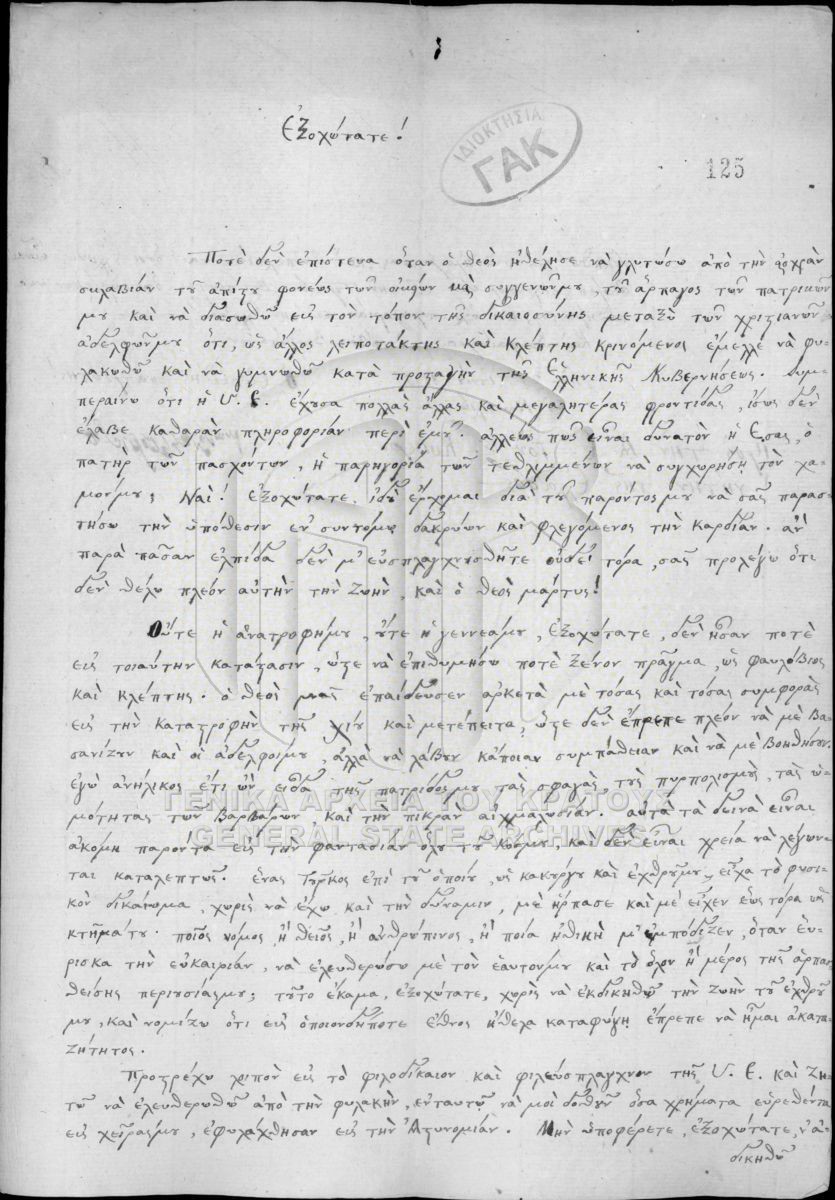 Ἐξοχώτατε!
ΙΔΙΟΚΤΗΣΙΑ
ΓΑΚ
125
Ποτὲ δὲν ἐπίστευα ὅταν ὁ θεὸς ἠθέλησε νὰ γλυτώσω ἀπὸ τὴν αἰσχρὰν
σκλαβιὰν τοῦ ἀπίστου φονέως τῶν οἰκείων καὶ συγγενῶνμου, τοῦ ἅρπαγος τῶν πατρικῶν
μου καὶ νὰ διασωθῶ εἰς τὸν τόπον τῆς δικαιοσύνης μεταξὺ τῶν χριστιανῶν
ἀδελφῶνμου ὅτι, ὡς ἄλλος λειποτάκτης καὶ κλέπτης κρινόμενος ἔμελλε νὰ φυ-
λακωθῶ καὶ νὰ γυμνωθῶ κατὰ προσταγὴν τῆς Ἑλληνικῆς Κυβερνήσεως. Συμ-
περαίνω ὅτι ἡ Υ. Ε. ἔχουσα πολλὰς ἄλλας καὶ μεγαλητέρας φροντίδας, ἴσως δὲν
ἔλαβε καθαρὰν πληροφορίαν περὶ ἐμοῦ. ἀλλέως πῶς εἶναι δυνατὸν ἡ Ε.σας, ὁ
πατὴρ τῶν πασχόντων, ἡ παρηγορία τῶν τεθλιμμένων νὰ συγχωρήσῃ τὸν χα-
μόνμου; Ναὶ. Ἐξοχώτατε, ἰδοὺ ἔρχομαι διὰ τοῦ παρόντοςμου νὰ σᾶς παρασ-
τήσω τὴν ὑπόθεσιν ἐν συντόμῳ δακρύων καὶ φλεγόμενος τὴν καρδίαν. ἂν
παρὰ πᾶσαν ἐλπίδα δὲν μ' εὐσπλαγχνισθῆτε οὐδὲ τόρα, σᾶς προλέγω ὅτι
δὲν θέλω πλέον αὐτὴν τὴν ζωὴν, καὶ ὁ θεὸς μάρτυς!
Οὔτε ἡ ἀνατροφήμου, οὔτε ἡ γεννεάμου, Ἐξοχώτατε, δὲν ἦσαν ποτὲ
εἰς τοιαύτην κατάστασιν, ὥστε νὰ ἐπιθυμήσω ποτὲ ξένον πρᾶγμα, ὡς φαυλόβιος
καὶ κλέπτης. ὁ θεὸς μᾶς ἐπαίδευσεν ἀρκετὰ μὲ τόσας καὶ τόσας συμφορὰς
εἰς τὴν καταστροφὴν τῆς Χίου καὶ μετέπειτα, ὥστε δὲν ἔπρεπε πλέον νὰ μὲ βα-
σανίζουν καὶ οἱ ἀδελφοίμου, ἀλλὰ νὰ λάβουν κάποιαν συμπάθειαν καὶ νὰ μὲ βοηθήσουν.
ἐγὼ ἀνήλικος ἔτι ὢν εἶδα τῆς πατρίδοςμου τὰς σφαγὰς, τοὺς πυρπολισμοὺς, τὰς ὠ-
μότητας τῶν βαρβάρων, καὶ τὴν πικρὰν αἰχμαλωσίαν. αὐτὰ τὰ δεινὰ εἶναι
ἀκόμη παρόντα εἰς τὴν φαντασίαν ὅλου τοῦ κόσμου, καὶ δὲν εἶναι χρεία νὰ λέγων-
ται καταλεπτῶς. ἕνας Τοῦρκος ἐπὶ τοῦ ὁποίου, ὡς κακούργου καὶ ἐχθροῦμου, εἶχα τὸ φυσι-
κὸν δικαίωμα, χωρὶς νὰ ἔχω καὶ τὴν δύναμιν, μὲ ἥρπασε καὶ μὲ εἶχεν ἕως τόρα ὡς
κτῆμάτου. ποῖος νόμος, ἢ θεῖος, ἢ ἀνθρώπινος, ἢ ποία ἠθικὴ μ' ἐμπόδιζεν, ὅταν εὕ-
ρισκα τὴν εὐκαιρίαν, νὰ ἐλευθερώσω μὲ τὸν ἑαυτόνμου καὶ τὸ ὅλον ἢ μέρος τῆς ἁρπασ-
θείσης περιουσίαςμου; τοῦτο ἔκαμα, ἐξοχώτατε, χωρὶς νὰ ἐκδικηθῶ τὴν ζωὴν τοῦ ἐχθροῦ
μου, καὶ νομίζω ὅτι εἰς ὁποιονδήποτε ἔθνος ἤθελα καταφύγῃ ἔπρεπε νὰ ἦμαι ἀκατα-
ζήτητος.
Προστρέχω λοιπὸν εἰς τὸ φιλοδίκαιον καὶ φιλεύσπλαγχνον τῆς Υ. Ε. καὶ ζη-
τῶ νὰ ἐλευθερωθῶ ἀπὸ τὴν φυλακὴν, ἐνταυτῷ νὰ μοὶ δοθοῦν ὅσα χρήματα εὑρεθέντα
εἰς χεῖράςμου, ἐφυλάχθησαν εἰς τὴν Ἀστυνομίαν. Μὴν ὑποφέρετε, ἐξοχώτατε, ν' ἀ-
δικηθῶ
ΓΕΝΙΚΑ ΑΡΧΕΙΑ ΤΟΥ ΚΡΑΤΟΥΣ
GENERAL STATE ARCHIVES